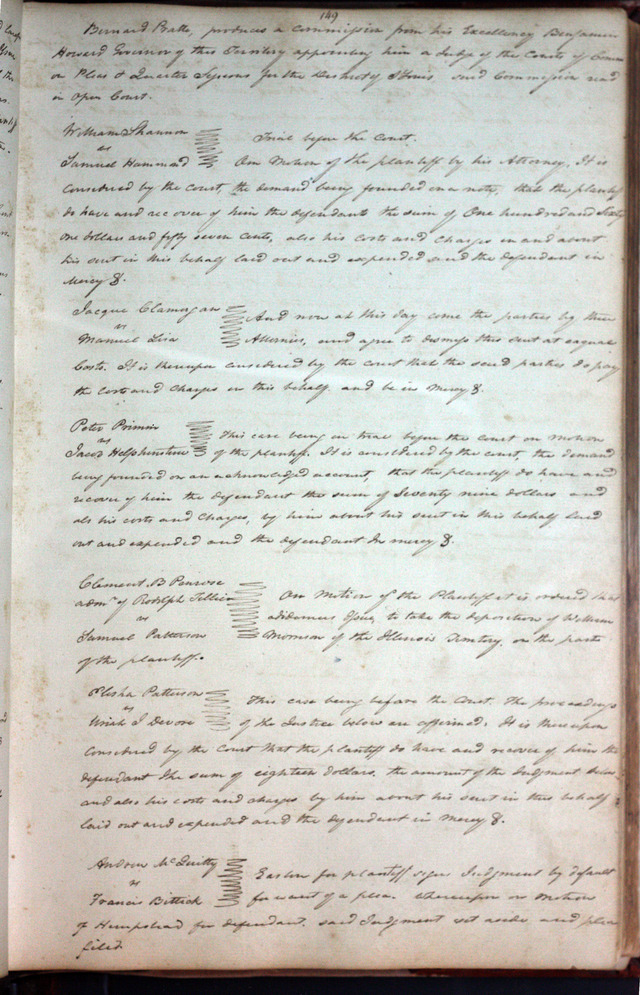 149
Bernard Pratte, produces a Commission from his Excellency Benjamin
Howard Governor of this Territory appointing him a Judge of the Courts of Comm
on Pleas & Quarter Sessions for the District of St Louis said Commission read
in Open Court.
William Shannon
vs
Samuel Hammond
Trial before the Court.
On Motion of the plaintiff by his Attorney, It is
considered by the Court, the demand being founded on a note, that the plaintiff
do have and recover of him the defendant the sum of One hundred and Sixty
one dollars and fifty seven Cents, also his Costs and Charges in and about
his suit in this behalf laid out and expended and the defendant in
Mercy &.
Jacque Clamorgan
vs
Manuel Lisa
And now at this day come the parties by their
Attornies, and agree to dismiss this suit at equal
Costs. It is thereupon considered by the Court that the said parties do pay
the costs and Charges in this behalf. and be in Mercy &.
Peter Primm
vs
Jacob Helphenstein
This case being on trial before the court on motion
of the plaintiff. It is considered by the court, the demand
being founded on an acknowledged account, that the plaintiff do have and
recover of him the defendant the sum of Seventy nine dollars and
als his costs and Charges, by him about his suit in this behalf laid
out and expended and the defendant In mercy &.
Clement. B Penrose
admr of Rodolph Tillier
vs
Samuel Patterson
On Motion of the Plaintiff it is ordered that
a didemus to take the deposition of William
Morrison of the Illinois Territory, on the parte
of the plaintiff.
Elisha Patterson
vs
Uriah J Devore
This case being before the Court. The proceedings
of the Justice below are affirmed. It is thereupon
Considered by the Court that the plaintiff do have and recover of him the
defendant the sum of eighteen dollars. the amount of the Judgment below
and also his costs and charges by him about his suit in this behalf
laid out and expended and the defendant in mercy &.
Andrew McQuitty
vs
Francis Bittick
Easton for plaintiff signs Judgment by default
for want of a plea. Whereupon on Motion
of Hempstead for defendant. said Judgment set aside and plea
filed